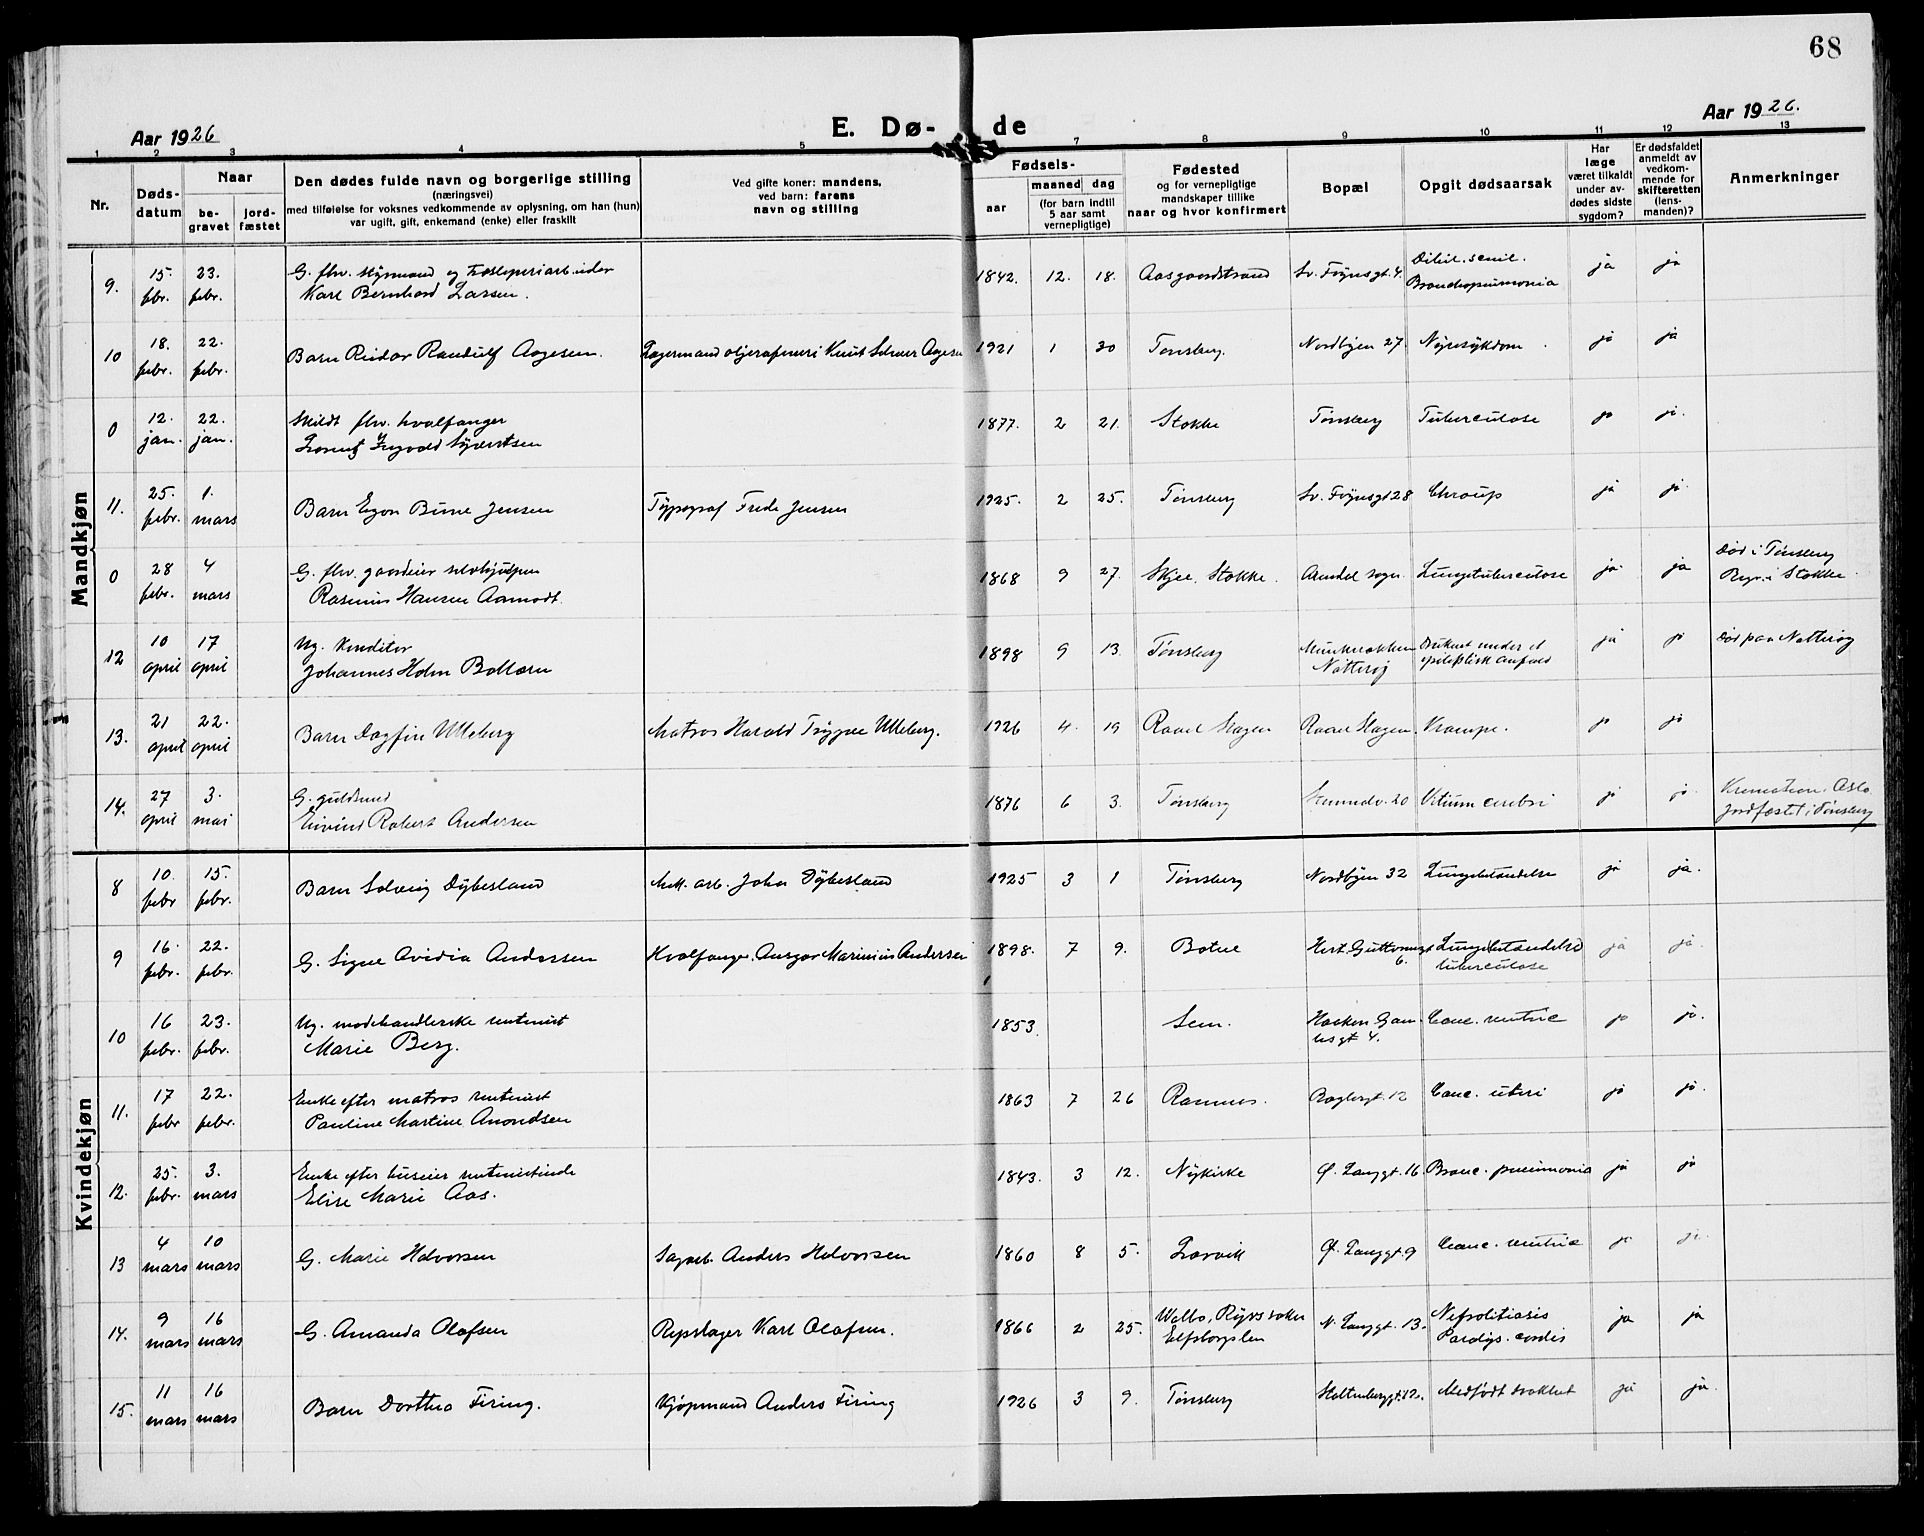 68
Aar 1926
E. Døde
Aar 1926.
1 2 3 4 5 7 8 9 10 11 12 13
Nr.
Døds-
datum
Naar
be-
gravet
jord-
fæstet
Den dødes fulde navn og borgerlige stilling
(næringsvei)
med tilføielse for voksnes vedkommende av oplysning, om han (hun)
var ugift, gift, enkemand (enke) eller fraskilt
Ved gifte koner: mandens,
ved barn: farens
navn og stilling
Fødsels-
aar
maaned dag
(for barn indtil
5 aar samt
vernepligtige)
Fødested
og for vernepligtige
mandskaper tillike
naar og hvor konfirmert
Bopæl
Opgit dødsaarsak
Har
læge
været tilkaldt
under av-
dødes sidste
sygdom?
Er dødsfaldet
anmeldt av
vedkom-
mende for
skifteretten
(lens-
manden)?
Anmerkninger
Mandkjøn
9. 15. febr. 23. febr. G. fhv. styrmand og
Karl Bernhard Larsen. 1842. 12. 18. Aasgaardstrand Sv. Foynsgt. 4. Debil. senil.
Bronchopneumonia ja ja
10 18. febr. 22. febr. Barn Reidar Randulf Aagesen. Lagermand oljerafineri Knut Aagesen 1921 1 30 Tønsberg. Nordbyen 27 Nyresykdom. ja ja
0 12. jan. 22. jan. Skildt fhv. hvalfanger
Lorentz Ingvald Syvertsen 1877. 2 21. Stokke Tønsberg Tuberculose ja ja.
11. 25. febr. 1. mars Barn Egon Bime Jensen Typograf Frede Jensen 1925. 2 25. Tønsberg Sv. Foynsgt 28 Chroup ja ja
0 28 febr. 4 mars G. fhv. gaardeier selvhjulpen
Rasmus Hansen Aamodt. 1868 9 27. Skjee, Stokke. Arendal sogn Lungetuberculose ja ja Død i Tønsberg
Begr. i Stokke
12 10 april 17 april Ug. Konditor
Johannes Holm Bollærn 1898 9 13. Tønsberg Munkerekken
Nøtterøy Druknet under et
epileptisk anfald ja ja Død paa Nøtterøy
13. 21 april 22. april Barn Dagfin Ulleberg Matros Harald Trygve Ulleberg. 1926 4. 19 Raael Slagen Raael Slagen Krampe. ja ja
14. 27 april 3. mai G. guldsmed
Eivind Robert Andersen 1876 6 3. Tønsberg 20 Vitium cordis ja ja Kremation. Oslo.
Jordfæstet i Tønsberg
Kvindekjøn
8 10. febr 15. febr. Barn Solveig Dybesland Mek. arb. John Dybesland 1925 3 1 Tønsberg Nordbyen 32 Lungebetændelse ja ja.
9 16. febr. 22. febr. G. Signe Ovidia Andersen Hvalfanger Ansgar Marinius Andersen 1898. 7 9. Botne Hert. Guttormsgt
6. Lungebetændelse
tuberculose ja ja.
10 16 febr. 23. febr. Ug. modehandlerske rentenist
Marie Berg. 1853. Sem. Haakon Gam-
lesgt 4. Canc. ventric ja ja.
11. 17 febr 22. febr. Enke efter matros rentenist
Pauline Martine Amondsen 1863 7 26 Ramnes. Baglergt. 12 Canc. uteri ja ja.
12. 25. febr. 3. mars Enke efter huseier
Elise Marie Aas. 1843. 3 12. Nykirke Ø. Langgt. 16 Bronc. pneumonia ja ja
13 4 mars 10 mars G. Marie Halvorsen Sagarb. Anders Halvorsen 1860 8 5. Larvik Ø. Langgt. 9 Canc. ventric ja ja.
14. 9 mars 16 mars G. Amanda Olafsen Repslager Karl Olafsen. 1866 2 25. Walbo, Ryrs socken
Elfsborgslen N. Langgt. 13. Nefrolitiasis
Paralys. cordis ja ja
15. 11 mars 16 mars Barn Dorthea Firing. Kjøpmand Anders Firing 1926 3 9. Tønsberg Stoltenbergsgt. 12. Medfødt svakhet ja ja.